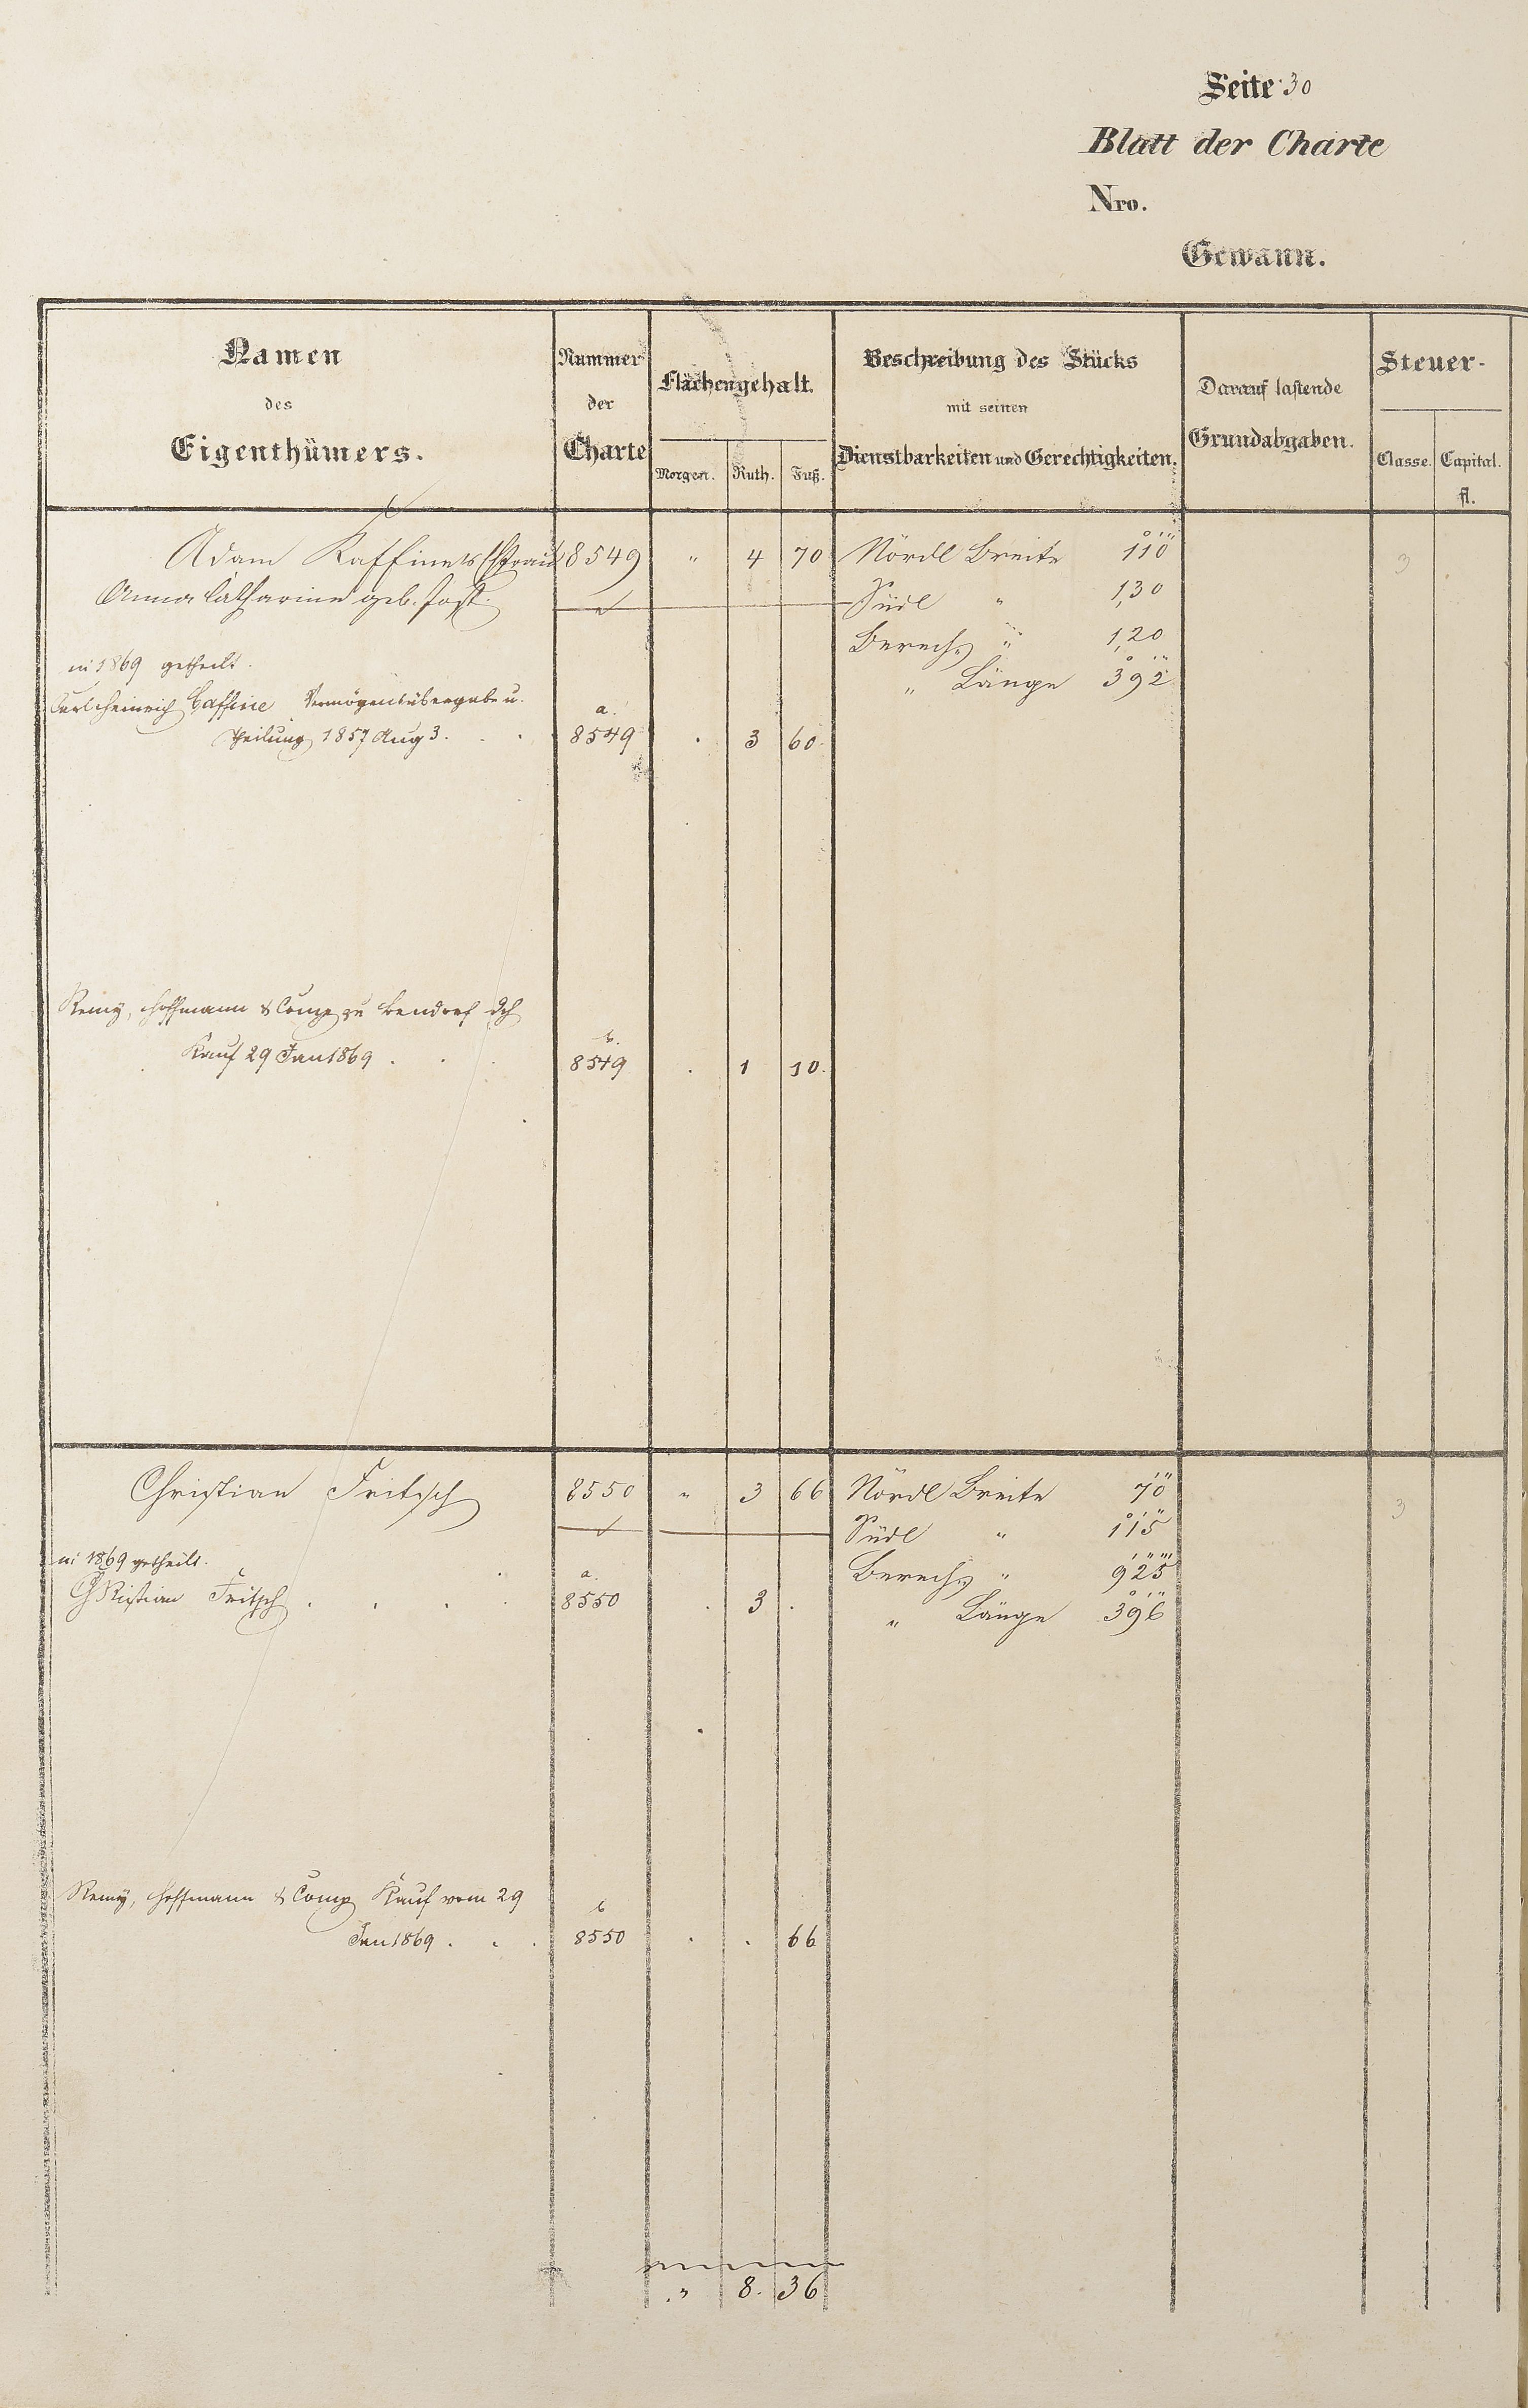 Seite 30
Blatt der Charte
Nro.
Gewann.
Namen des Eigenthümers.
Nummer der Charte
Flächengehalt.
Morgen. Ruth. Fuß.
Beschreibung des Stücks mit seinen Dienstbarkeiten und Gerechtigkeiten.
Darauf lastende Grundabgaben.
Steuer-
Classe. Capital.
fl.
Adam Kaffine's Ehefrau 8549 " 4 70 Nördl Breite 110 3
Anna Catharine geb. Jost. Südl " 1,30
Berech. " 1,20
in 1869 getheilt.
" Länge 392
Carl Heinrich Caffine Vermögensübergabe u.
Theilung 1857 Aug 3. . . a. 8549 . 3 60.
Remy, Hoffmann & Comp zu Bendorf dch
Kauf 29 Jan 1869 . . . b. 8549 . 1 10.
Christian Fritsch 8550 " 3 66 Nördl Breite 70 3
Südl " 115
in 1869 getheilt. Berech. " 925
Christian Fritsch . . . . a. 8550 . 3 . " Länge 396
Remy, Hoffmann & Comp Kauf vom 29
Jan 1869 . . . b 8550 . . 66
" 8. 36